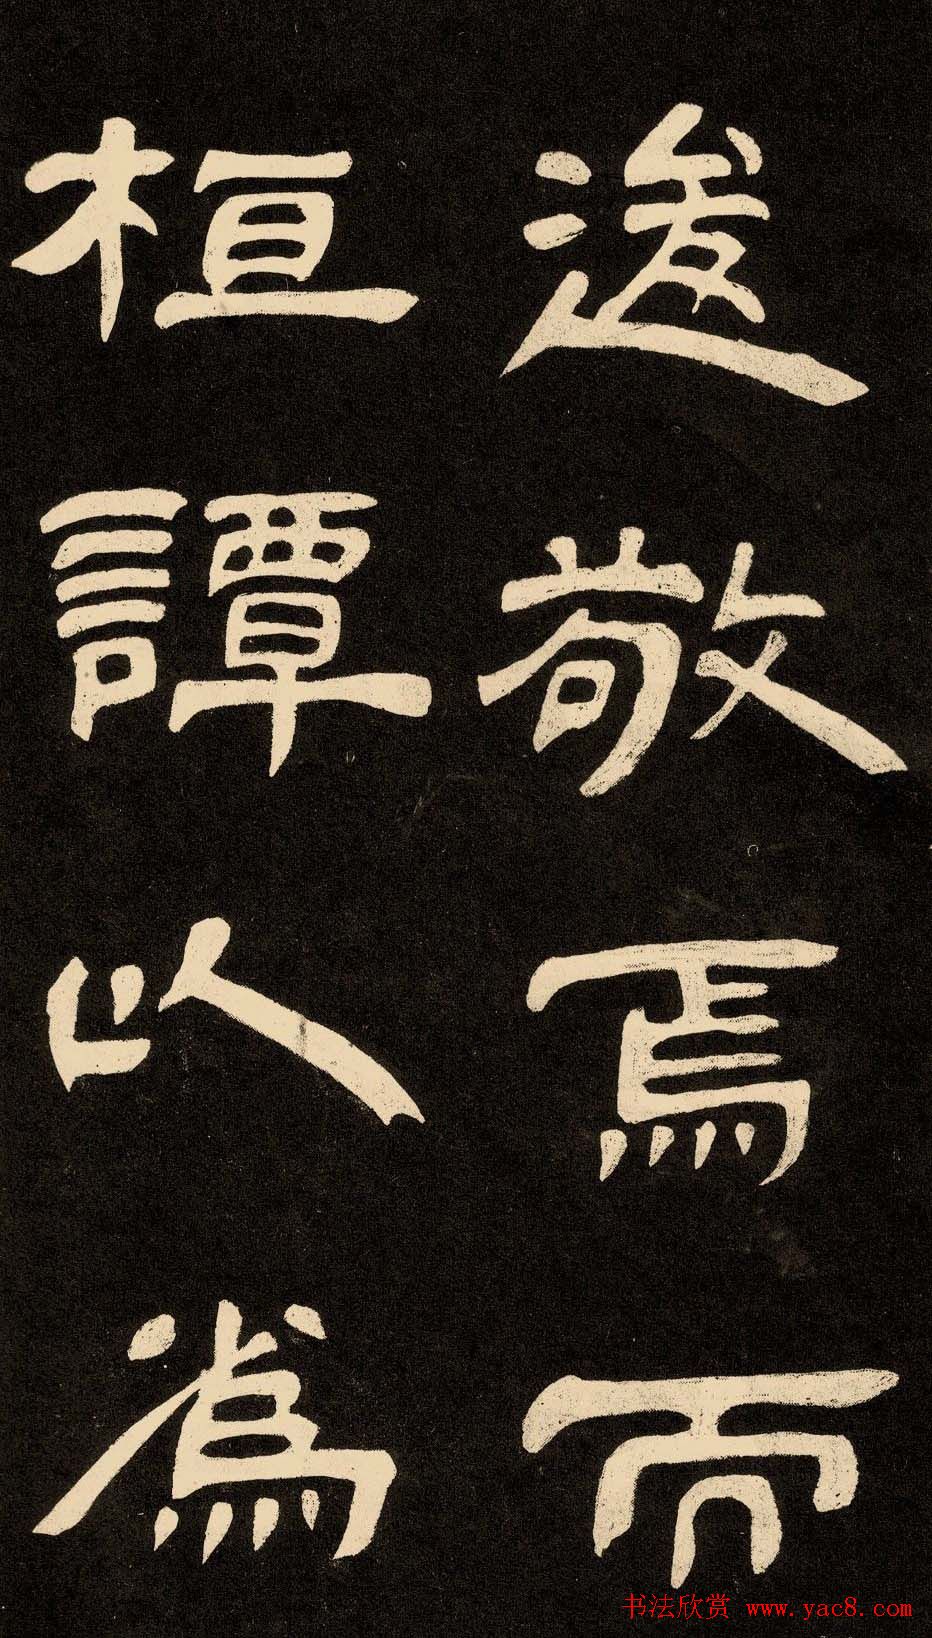 逡敬焉而
桓譚以爲
书法欣赏 www.yac8.com